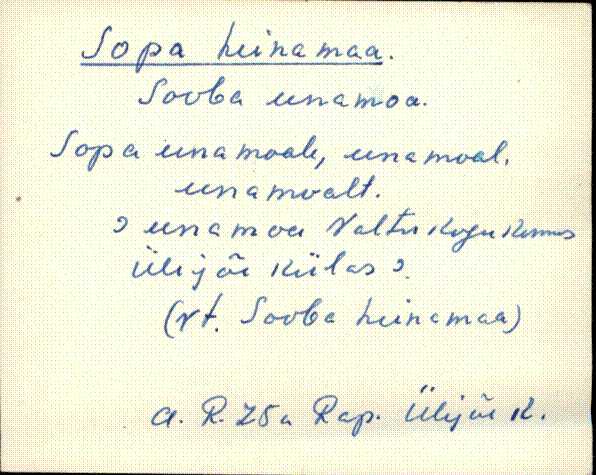 Sopa heinamaa.
Sooba einamoa.
Sopa einamoale, einamoal,
einamoalt.
, einamoa Valtu Kogukonnas
Ülejõe külas,
(vt. Sooba heinamaa)
A. R. 25a Rap. Ülejõe k.